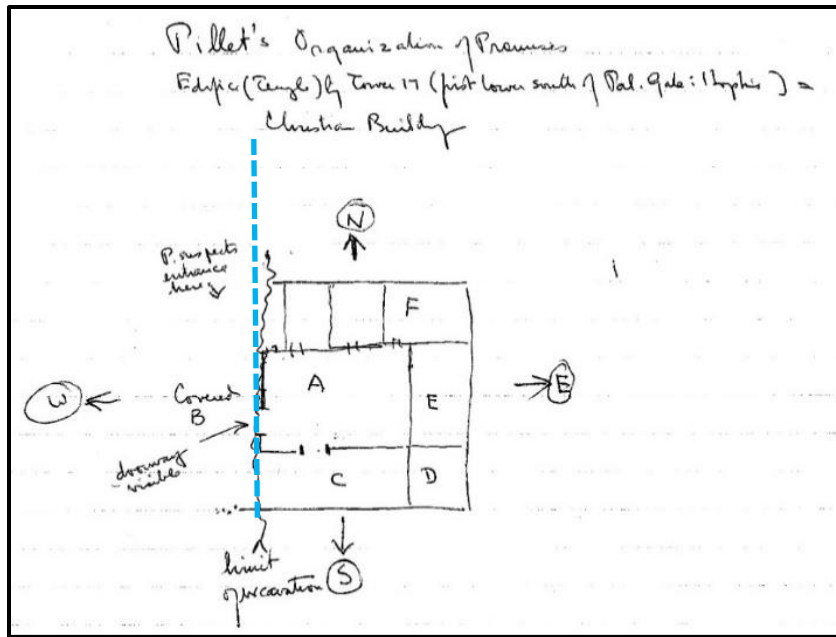 Pillet's Organization of Premises
Edifice (Temple) by Tower 17 (first tower south of Pal. Gate: Hopkins) =
Christian Building
N
P. suspects
entrance
here
F
W
Covered
B
A
E
E
doorway
visible
C
D
limit
of excavation
S